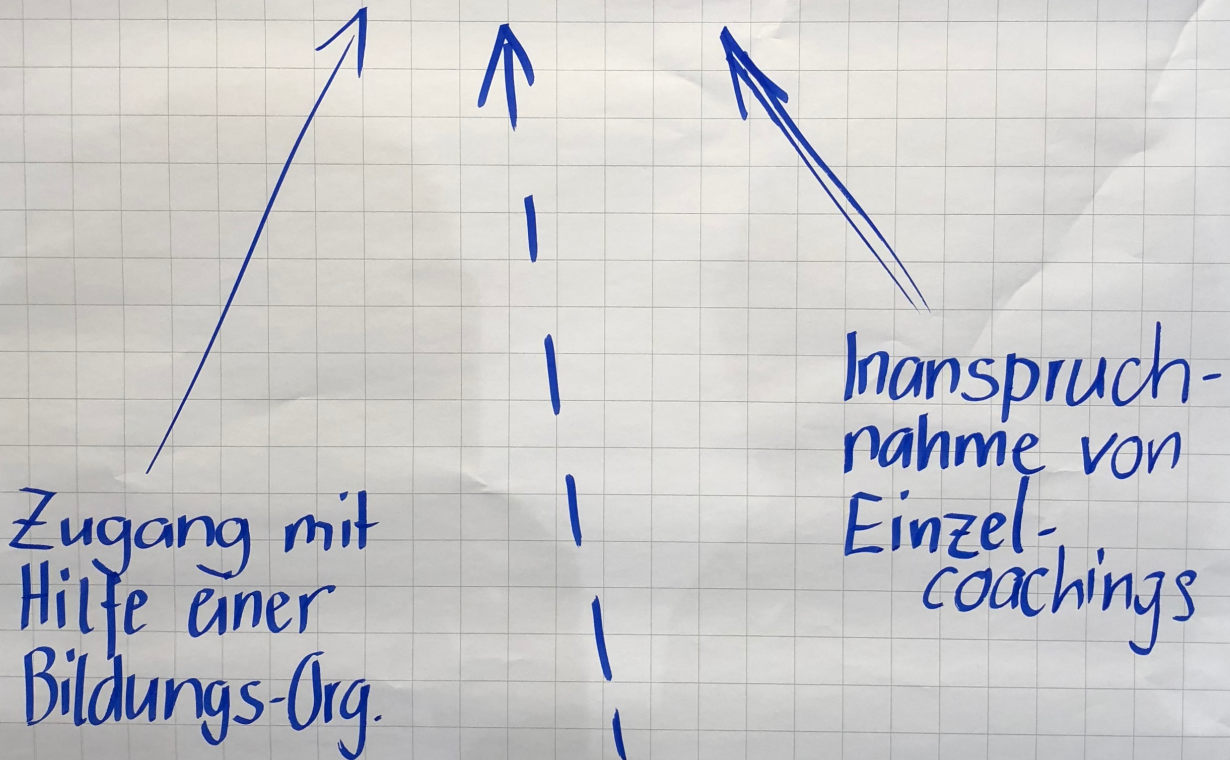 Zugang mit
Hilfe einer
Bildungs-Org.
Inanspruch-
nahme von
Einzel-
coachings